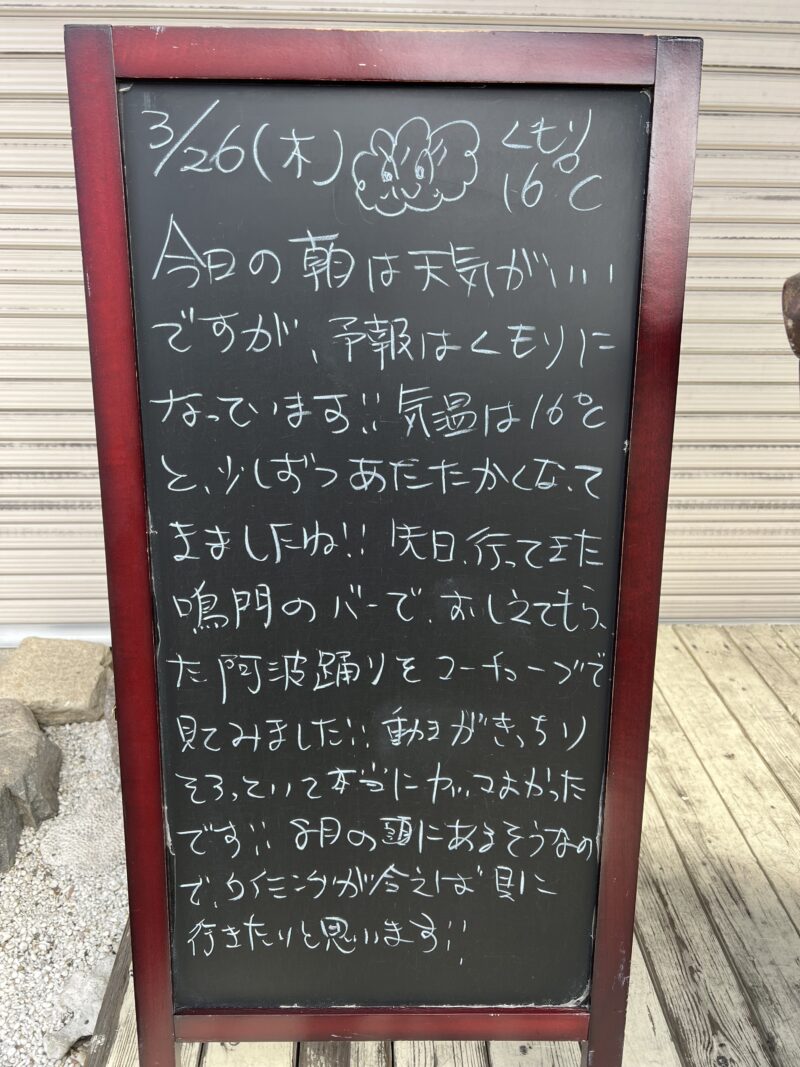 3/26(木) くもり
16℃
今日の朝は天気がいい
ですが、予報はくもりに
なっています!! 気温は16℃
と、少しずつあたたかくなって
きましたね!! 先日、行ってきた
鳴門のバーで、おしえてもらっ
た阿波踊りをユーチューブで
見てみました!! 動きがきっちり
そろっていて本当にカッコよかった
です!! 8月の頭にあるそうなの
で、タイミングが合えば見に
行きたいと思います!!